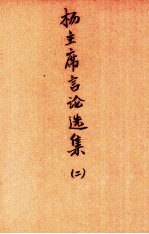 杨主席言论选集
(二)